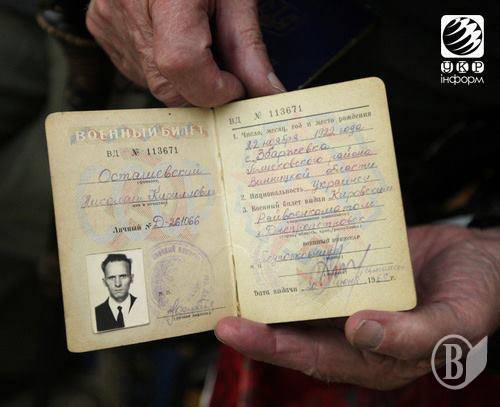 УКР
інформ
ВОЕННЫЙ БИЛЕТ
ВД № 113671
Осташевский
Николай Кириллович
Личный № Д-261066
ВД № 113671
1. Число, месяц, год и место рождения
22 ноября 1922 года
с. Збаржевка
района
Винницкой области
2. Национальность Украинец
3. Военный билет выдан Кировским
Райвоенкоматом
г. Днепропетровск
ВОЕННЫЙ КОМИССАР
М. П.
Дата выдачи 196
В